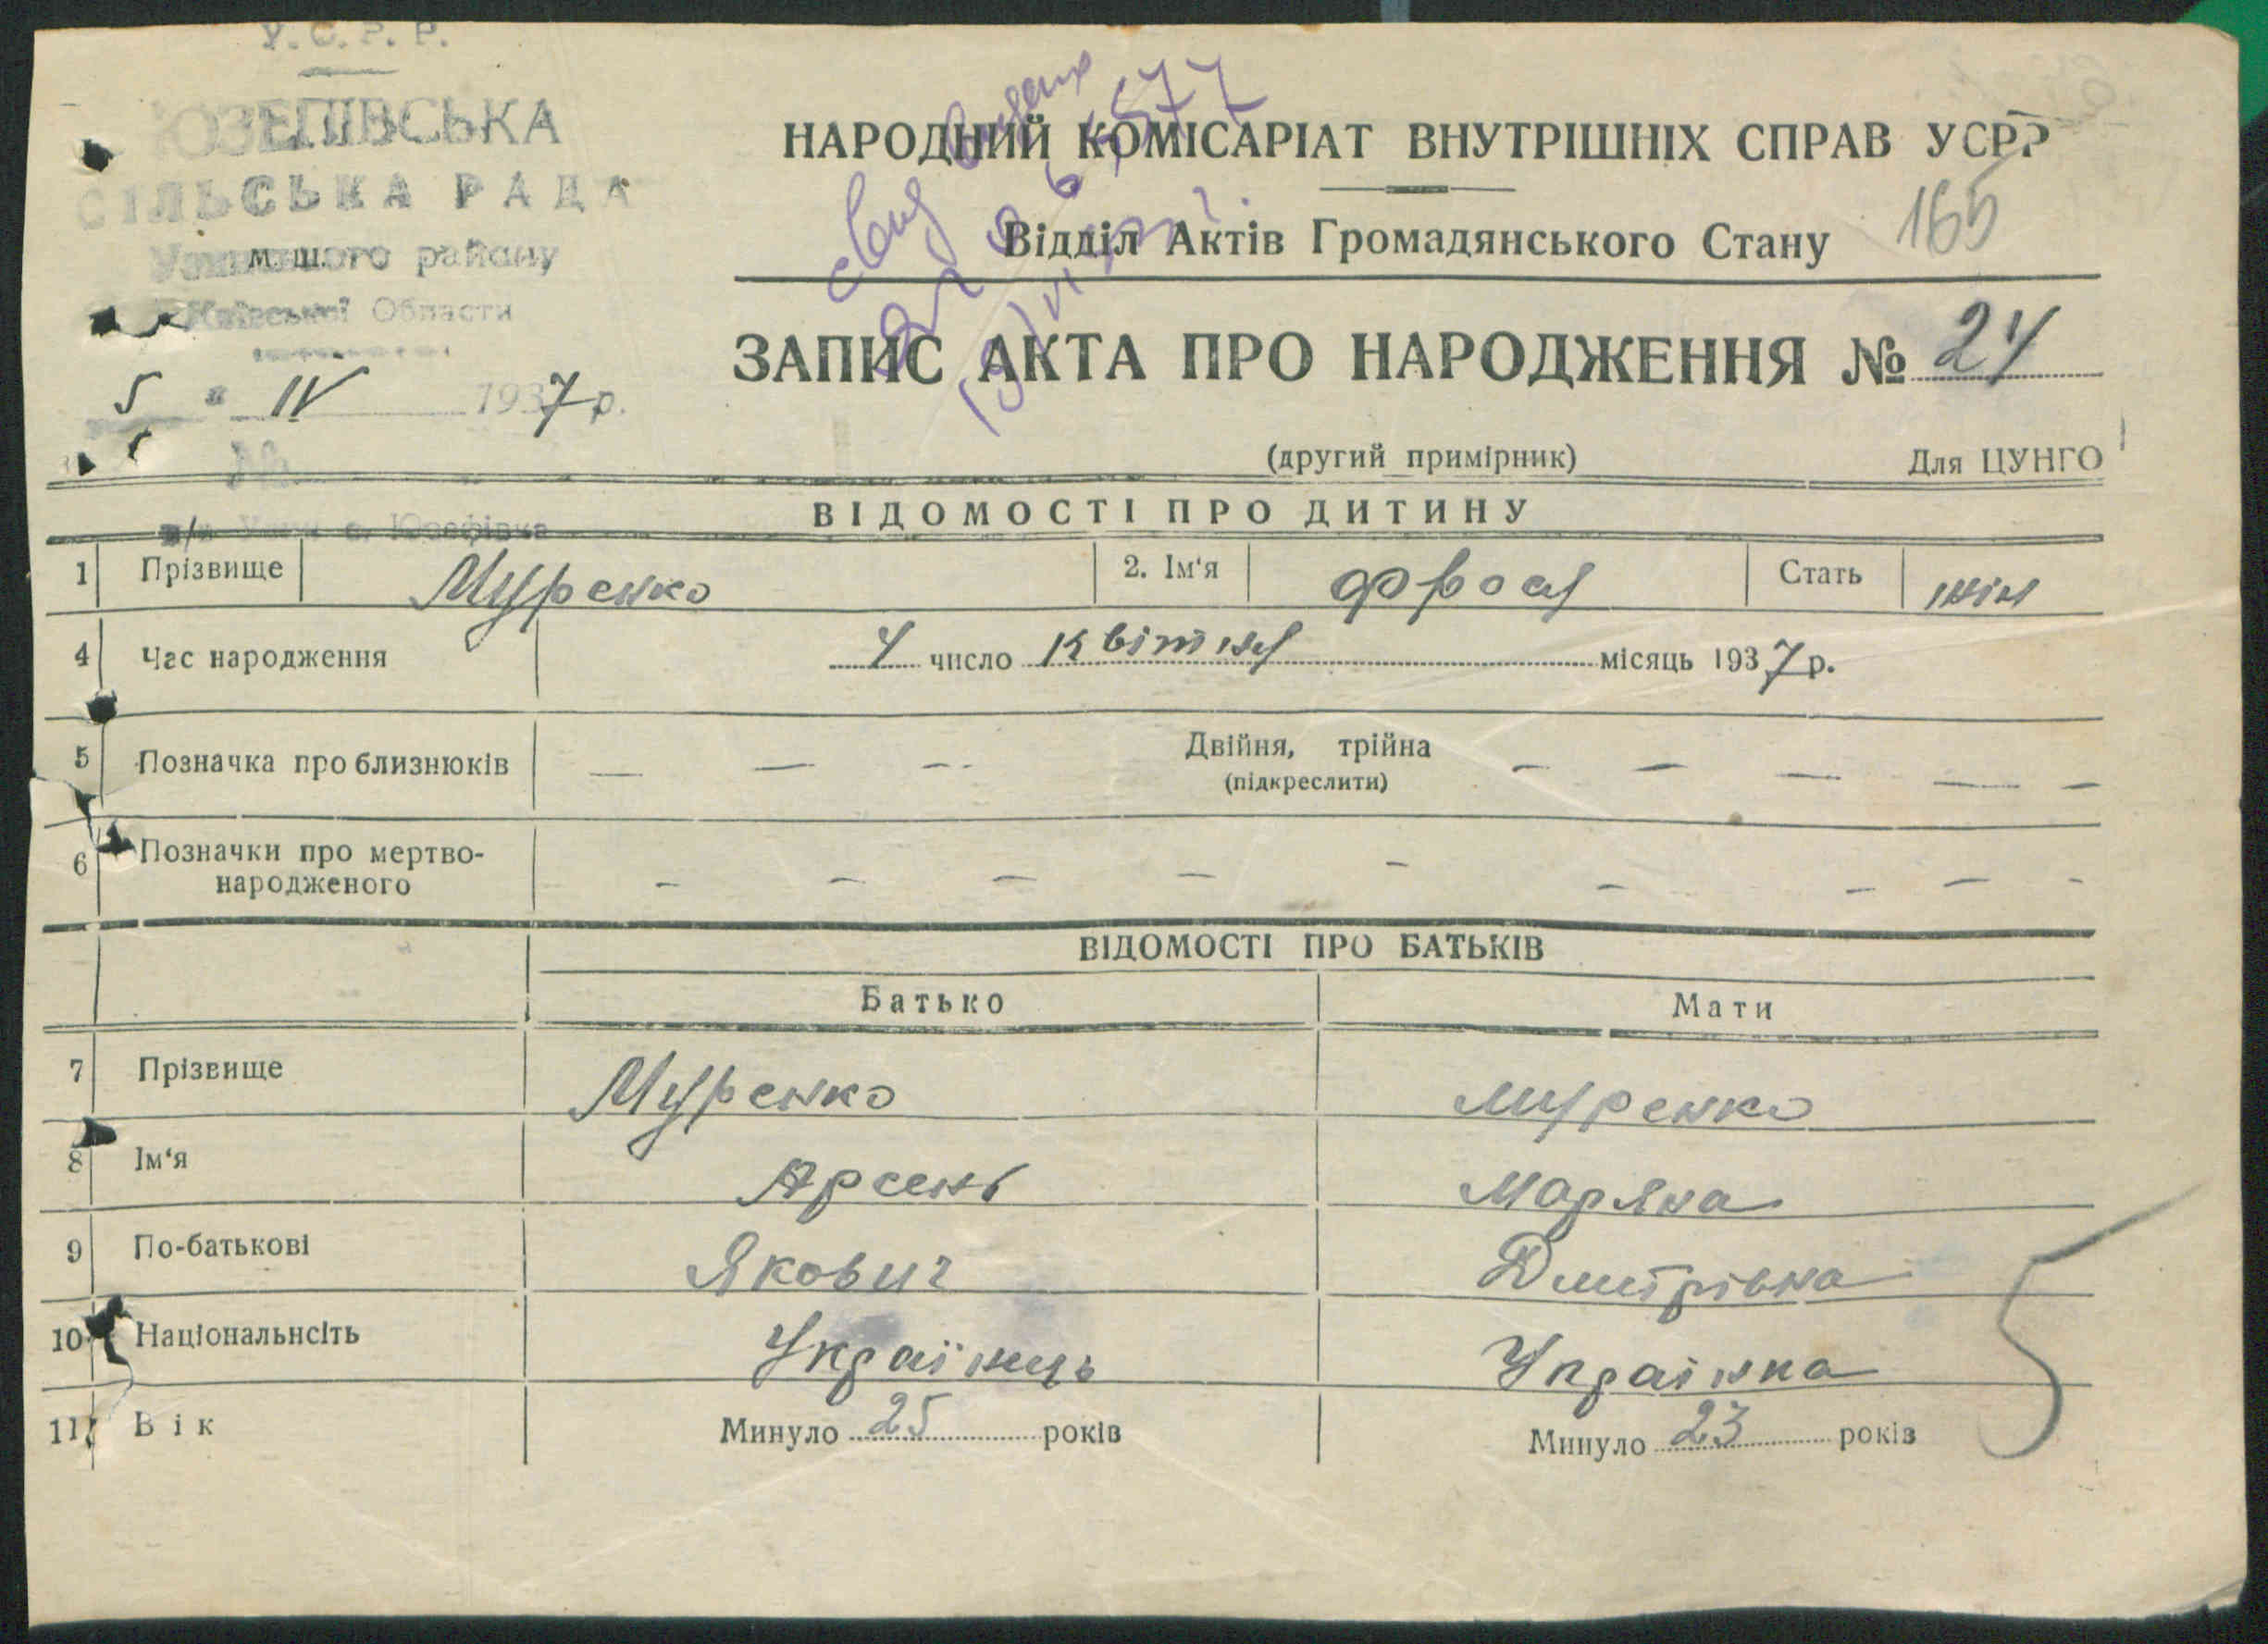 У.С.Р.Р.
ЮЗЕПІВСЬКА
СІЛЬСЬКА РАДА
району
Київської Области
5 " IV 1937 р.
№
с. Юзефівка
НАРОДНИЙ КОМІСАРІАТ ВНУТРІШНІХ СПРАВ УСРР
Відділ Актів Громадянського Стану 165
ЗАПИС АКТА ПРО НАРОДЖЕННЯ № 24
(другий примірник) Для ЦУНГО
ВІДОМОСТІ ПРО ДИТИНУ
1 Прізвище Муренко 2. Ім'я Фрося Стать жін
4 Час народження 4 число квітня місяць 1937 р.
5 Позначка про близнюків — — — Двійня, трійна — — — — —
(підкреслити)
6 Позначки про мертво-
народженого — — — — — — — — —
ВІДОМОСТІ ПРО БАТЬКІВ
Батько Мати
7 Прізвище Муренко Муренко
8 Ім'я Арсень Маряна
9 По-батькові Якович Дмитрівна
10 Національнсіть Українець Українка
11 Вік Минуло 25 років Минуло 23 років
5